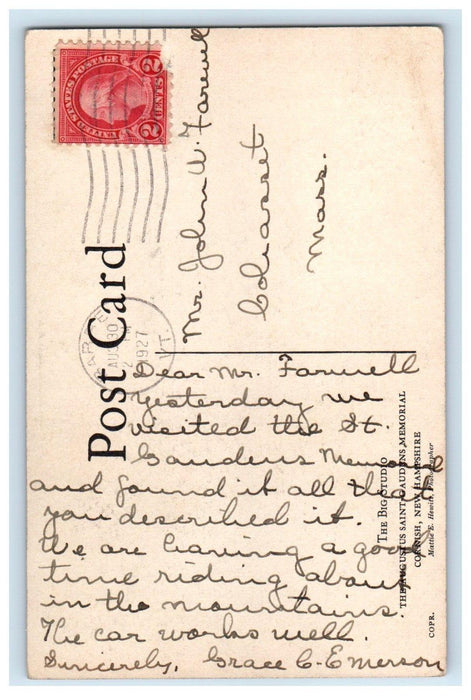 UNITED STATES POSTAGE
2 CENTS 2
AUG 30
1927
VT.
Post Card
Mr. John W. Farwell
Cohasset
Mass.
Dear Mr. Farwell
Yesterday we
visited the St.
Gaudens Memorial
and found it all that
you described it.
We are having a good
time riding about
in the mountains.
The car works well.
Sincerely, Grace C. Emerson
THE BIG STUDIO
THE AUGUSTUS SAINT-GAUDENS MEMORIAL
CORNISH, NEW HAMPSHIRE
COPR. Mattie E. Hewitt, Photographer